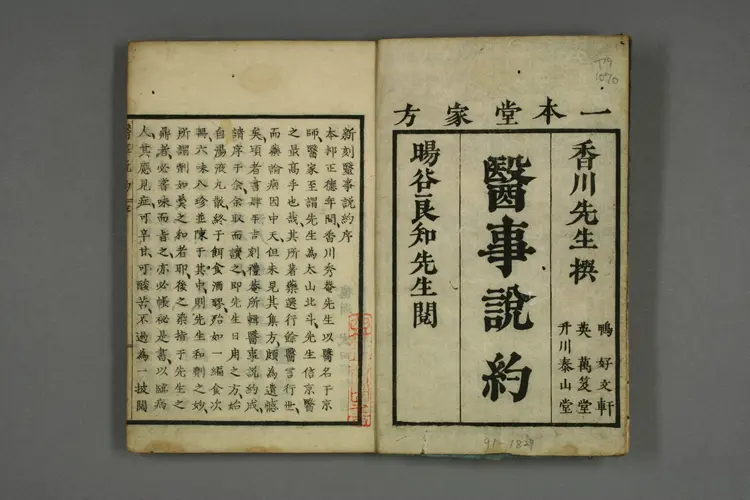 一本堂家方
香川先生撰
鴨 好文軒
英 萬笈堂
升川泰山堂
醫事說約
暘谷良知先生閲
新刻醫事說約序
本邦正德年間香川秀菴先生以醫名于京
師醫家至謂先生為太山北斗先生信京醫
之最高手也哉其所著藥選行餘醫言行世
而藥論病因中天但未見其集方頗為遺憾
矣項者書肆平吉刻禮菴所輯醫事說約成
請序于余余取而讀之即先生日用之方始
自湯液丸散終于餌食酒醪殆如一編食次
與六味八珍並陳于其中則先生和劑之妙
所謂劑如羹之和者耶後之染指于先生之
鼎者必嘗味而旨之亦必帳秘是書以臨病
人其應見症可辛甘可酸苦不過為一披閲
91-1829
1070